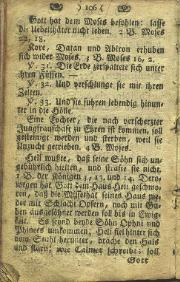 ) 106 (
Gott hat dem Moses befohlen: lasse
die Uebelthäter nicht leben. 2 B. Moses
22, 18.
Kore, Datan und Abiron erhuben
sich wider Moses. 4 B. Moses 16, 2.
V. 31. Die Erde zerspaltete sich unter
ihren Füssen.
V. 32. Und verschlunge sie mit ihren
Zelten.
V. 33. Und sie fuhren lebendig hinun-
ter in die Hölle
Eine Tochter, die nach verscherzter
Jungfrauschaft zu Ehren ist kommen, soll
gesteiniget werden und sterben, weil sie
Unzucht getrieben. 5 B. Moses.
Heli wußte, daß seine Söhn sich un-
gebührlich hielten, und strafte sie nicht.
1 B. der Königen 3, 13. und 14. Dero-
wegen hat Gott dem Haus Heli geschwo-
ren, daß die Missethat seines Haus we-
der mit Schlacht-Opfern, noch mit Ga-
ben ausgesöhnet werden soll bis in Ewig-
keit. Es seynd beyde Söhn Ophni und
Phinees umkommen; Heli fiel hinter sich
vom Stuhl herunter, brache den Hals
und starb, wie Calmet schreibt: soll
Gott